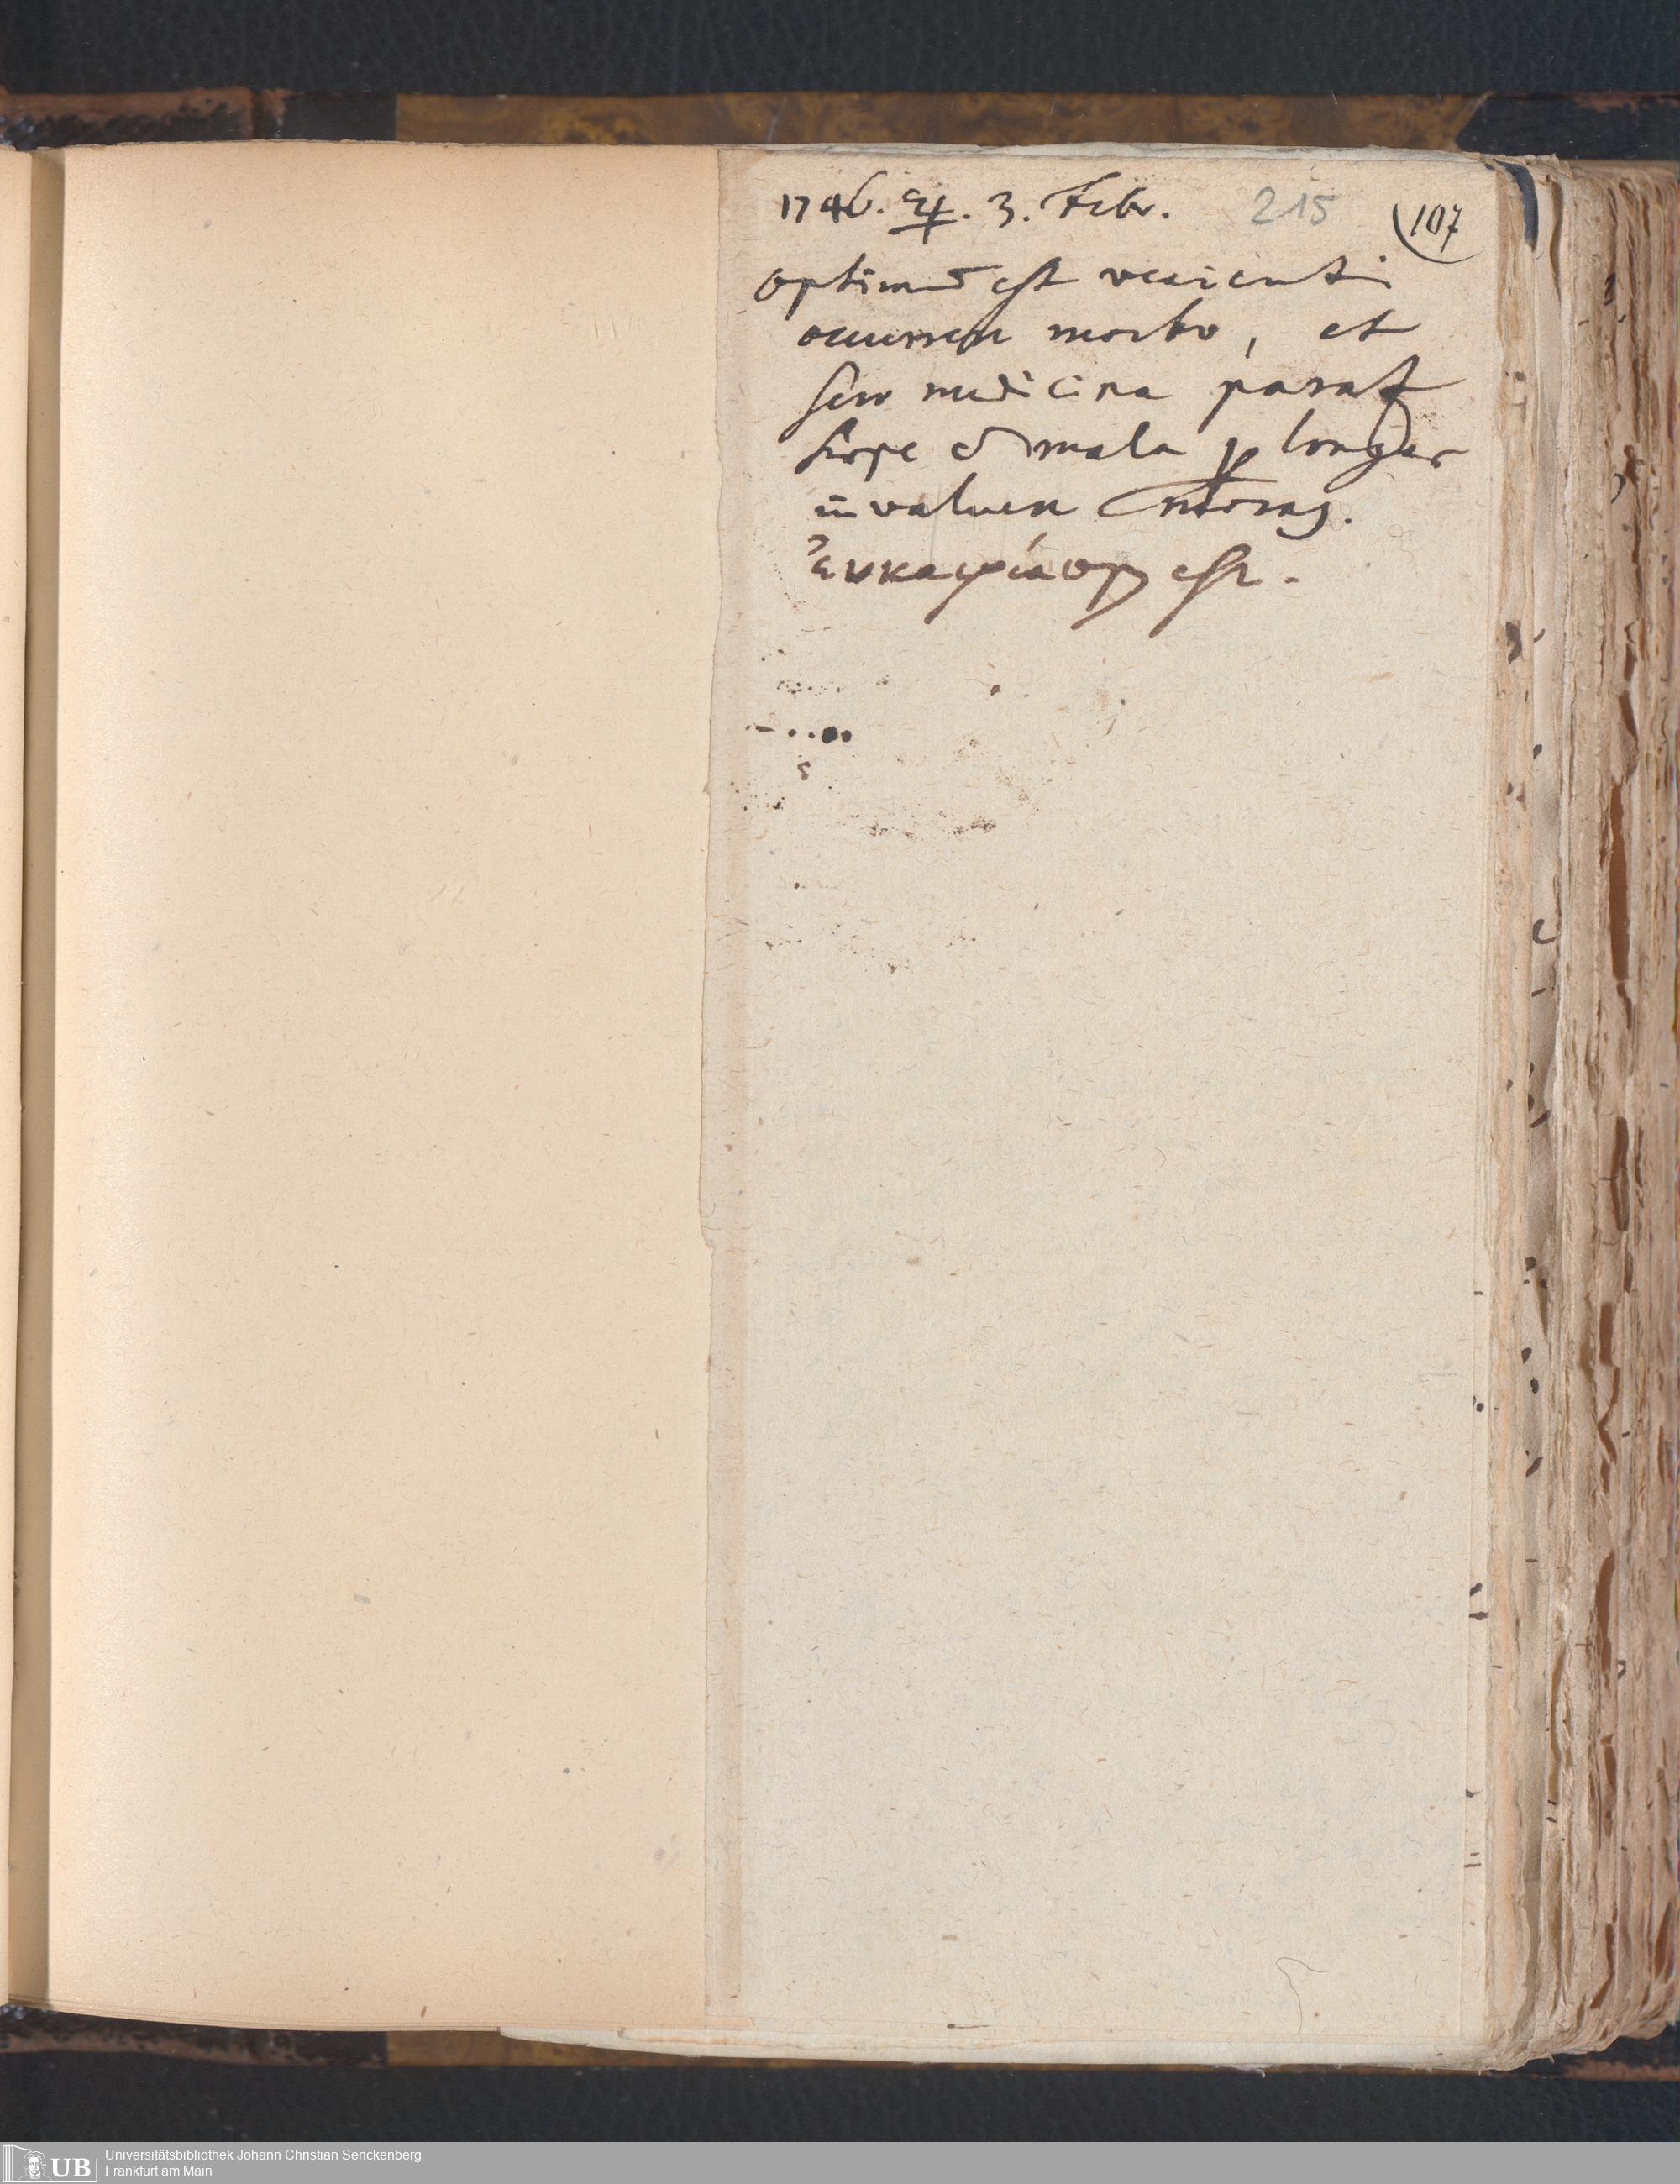 1746. ♃. 3. Febr. 215 107
optimū est venienti
occurrere morbo, et
sero medicina parat
saepe cū mala p longas
invaluere moras.
est.
Universitätsbibliothek Johann Christian Senckenberg
UB Frankfurt am Main